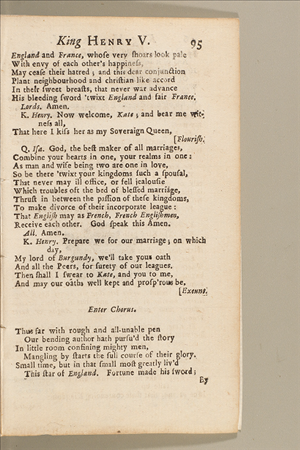 King HENRY V. 95
England and France, whose very shores look pale
With envy of each other's happiness,
May cease their hatred; and this dear conjunction
Plant neighbourhood and christian like accord
In their sweet breasts, that never war advance
His bleeding sword 'twixt England and fair France.
Lords. Amen.
K. Henry. Now welcome, Kate; and bear me wit-
ness all,
That here I kiss her as my Soveraign Queen,
[Flourish.
Q. Isa. God, the best maker of all marriages,
Combine your hearts in one, your realms in one:
As man and wife being two are one in love,
So be there 'twixt your kingdoms such a spousal,
That never may ill office, or fell jealousie
Which troubles oft the bed of blessed marriage,
Thrust in between the passion of these kingdoms,
To make divorce of their incorporate league:
That English may as French, French Englishmen,
Receive each other. God speak this Amen.
All. Amen.
K. Henry. Prepare we for our marriage; on which
day,
My lord of Burgundy, we'll take your oath
And all the Peers, for surety of our leagues.
Then shall I swear to Kate, and you to me,
And may our oaths well kept and prosp'rous be.
[Exeunt.
Enter Chorus.
Thus far with rough and all-unable pen
Our bending author hath pursu'd the story
In little room confining mighty men,
Mangling by starts the full course of their glory.
Small time, but in that small most greatly liv'd
This star of England. Fortune made his sword;
By